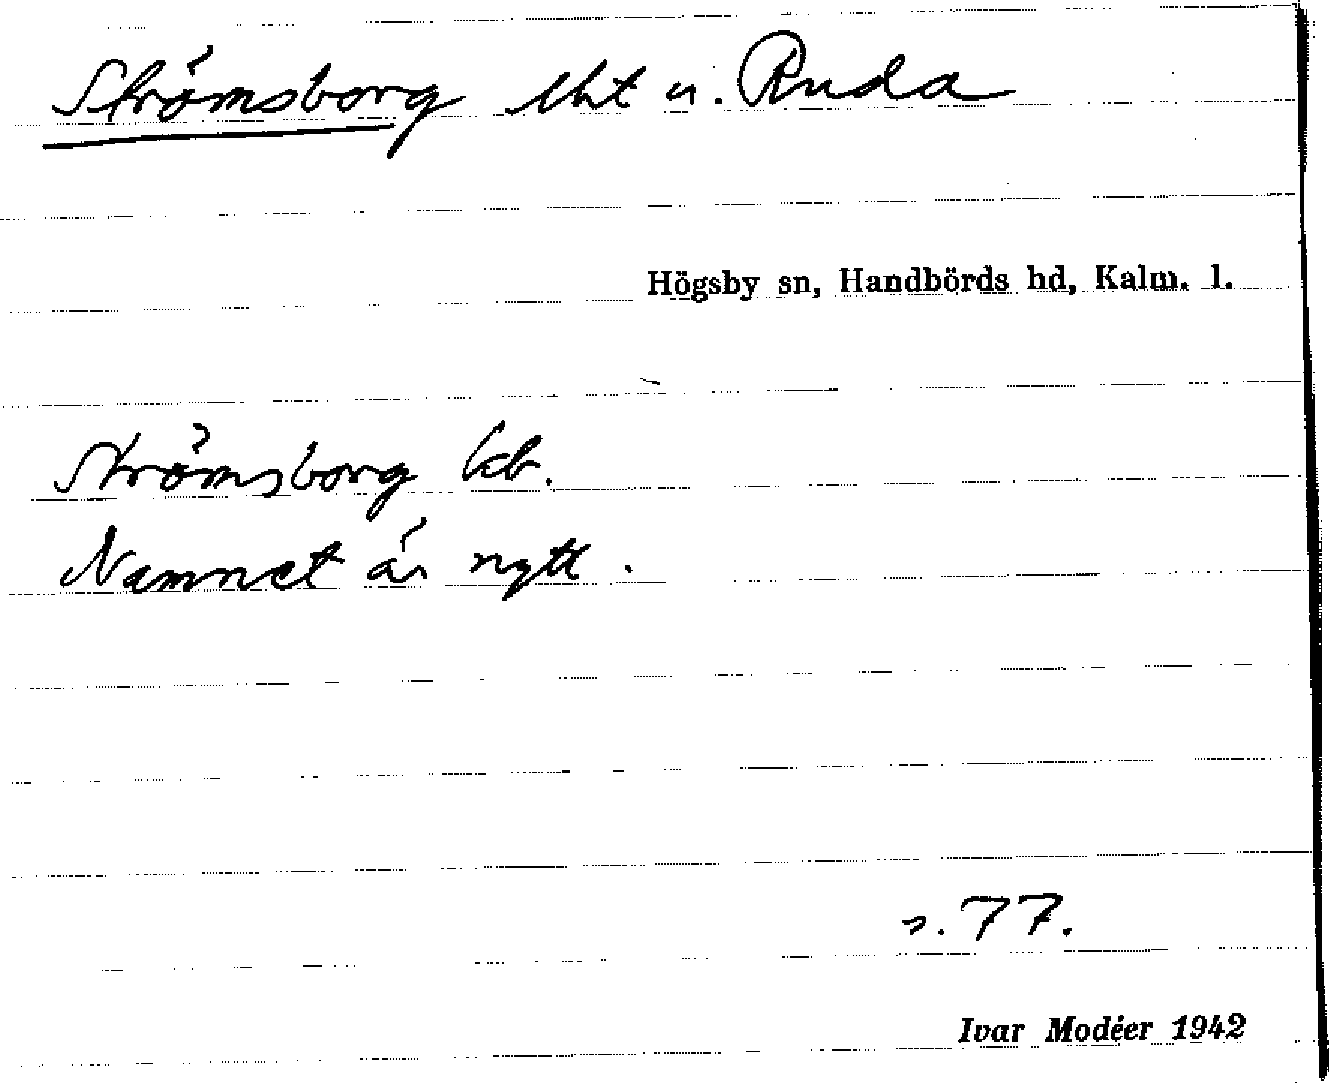 Strömsborg lht u. Ruda
Högsby sn, Handbörds hd, Kalm. l.
Strömsborg kb.
Namnet är nytt.
s. 77.
Ivar Modéer 1942